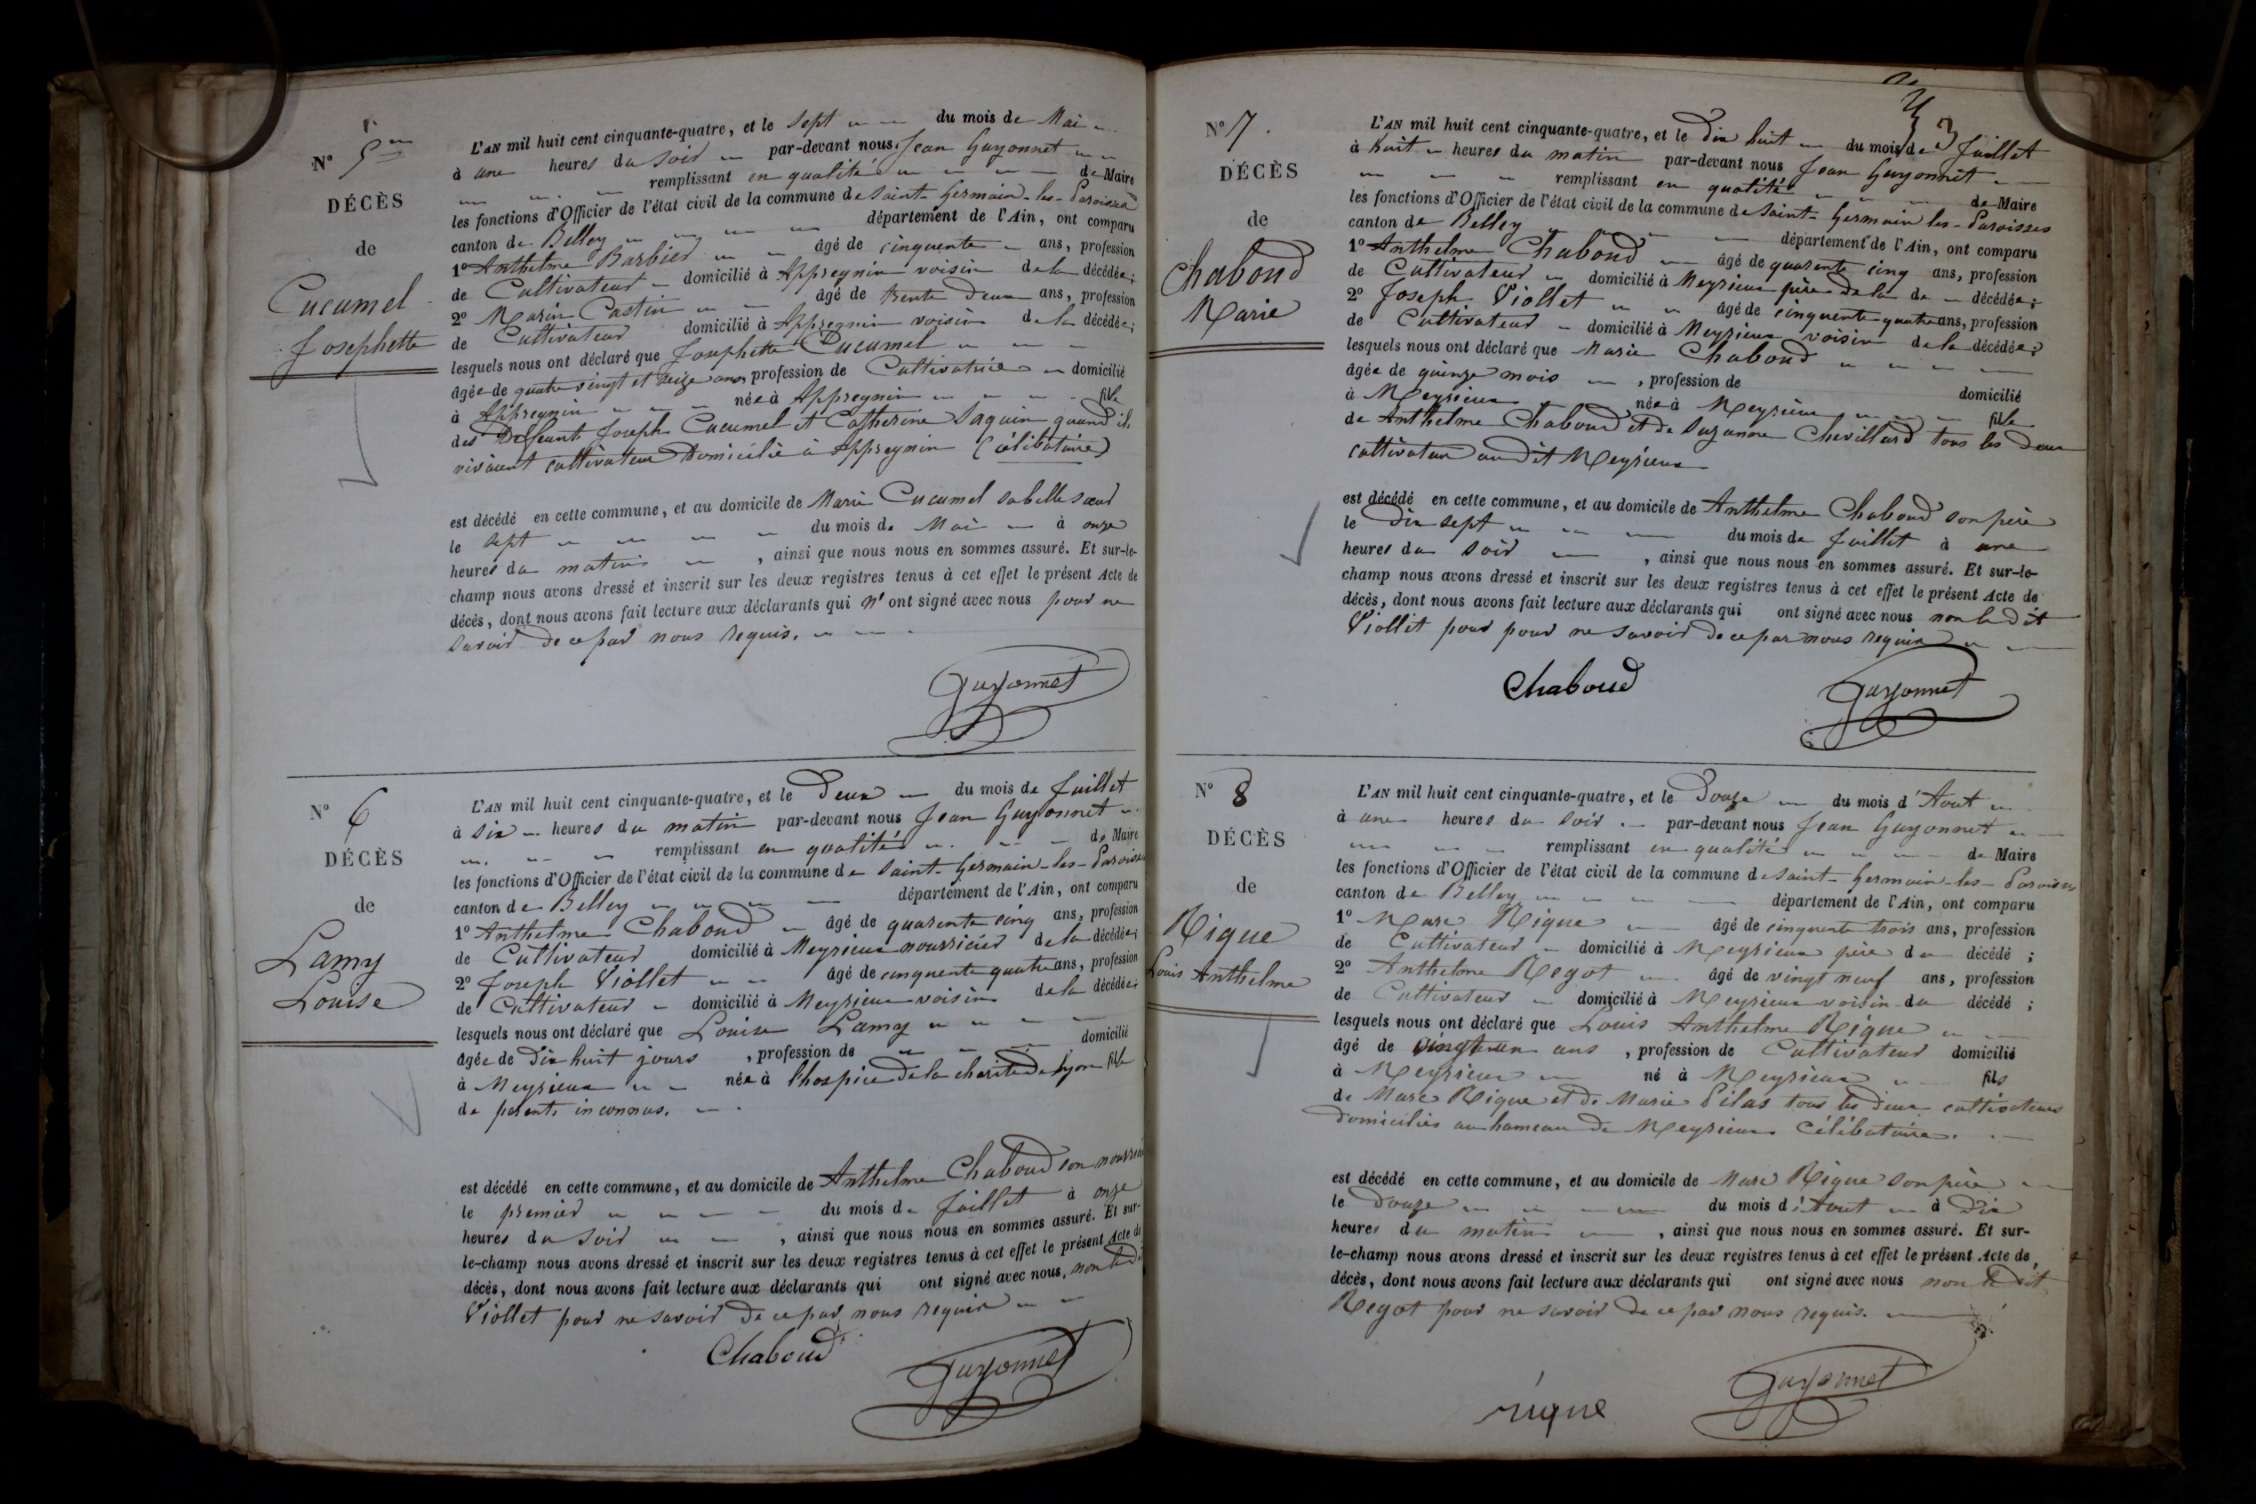 N° 5me
DÉCÈS
de
Cucumel
Josephette
L'AN mil huit cent cinquante-quatre, et le Sept du mois de Mai
à une heures du Soir par-devant nous Jean Guyonnet
remplissant en qualité de Maire
les fonctions d'Officier de l'état civil de la commune de Saint-Germain-les-Paroisses
canton de Belley département de l'Ain, ont comparu
1° Anthelme Barbier âgé de cinquante ans, profession
de Cultivateur domicilié à Appregnin voisin de la décédée;
2° Marin Castin âgé de trente deux ans, profession
de Cultivateur domicilié à Appregnin voisin de la décédée;
lesquels nous ont déclaré que Josephette Cucumel
âgée de quatre vingt et seize ans, profession de Cultivatrice domicilié
à Appregnin née à Appregnin fille
des Deffunt Joseph Cucumel et Catherine Saquin quand ils
vivaient cultivateur domicilié à Appregnin (célibataire)
est décédé en cette commune, et au domicile de Marie Cucumel sa belle sœur
le sept du mois de Mai à onze
heures du matin , ainsi que nous nous en sommes assuré. Et sur-le-
champ nous avons dressé et inscrit sur les deux registres tenus à cet effet le présent Acte de
décès, dont nous avons fait lecture aux déclarants qui n' ont signé avec nous pour ne
savoir de ce par nous requis.
Guyonnet
N° 6
DÉCÈS
de
Lamy
Louise
L'AN mil huit cent cinquante-quatre, et le Deux du mois de Juillet
à six heures du matin par-devant nous Jean Guyonnet
remplissant en qualité de Maire
les fonctions d'Officier de l'état civil de la commune de Saint-Germain-les-Paroisses
canton de Belley département de l'Ain, ont comparu
1° Anthelme Chaboud âgé de quarente cinq ans, profession
de Cultivateur domicilié à Meyrieux nourricier de la décédée;
2° Joseph Viollet âgé de cinquente quatre ans, profession
de Cultivateur domicilié à Meyrieux voisin de la décédée;
lesquels nous ont déclaré que Louise Lamy
âgée de Dix huit jours , profession de domicilié
à Meyrieux née à l'hospice de la charité de Lyon fille
de parents inconnus.
est décédé en cette commune, et au domicile de Anthelme Chaboud son nourricier
le premier du mois de Juillet à onze
heures du Soir , ainsi que nous nous en sommes assuré. Et sur-
le-champ nous avons dressé et inscrit sur les deux registres tenus à cet effet le présent Acte de
décès, dont nous avons fait lecture aux déclarants qui ont signé avec nous, non le dit
Viollet pour ne savoir de ce par nous requis
Chaboud
Guyonnet
3
N° 7.
DÉCÈS
de
Chaboud
Marie
L'AN mil huit cent cinquante-quatre, et le Dix huit du mois de Juillet
à huit heures du matin par-devant nous Jean Guyonnet
remplissant en qualité de Maire
les fonctions d'Officier de l'état civil de la commune de Saint-Germain les-Paroisses
canton de Belley département de l'Ain, ont comparu
1° Anthelme Chaboud âgé de quarente cinq ans, profession
de Cultivateur domicilié à Meyrieux père de la de décédée;
2° Joseph Viollet âgé de cinquente quatre ans, profession
de Cultivateur domicilié à Meyrieux voisin de la décédée;
lesquels nous ont déclaré que Marie Chaboud
âgée de quinze mois , profession de domicilié
à Meyrieux née à Meyrieux fille
de Anthelme Chaboud et de Suzanne Chevillard tous les deux
cultivateur audit Meyrieux
est décédé en cette commune, et au domicile de Anthelme Chaboud son père
le Dix sept du mois de Juillet à une
heures du Soir , ainsi que nous nous en sommes assuré. Et sur-le-
champ nous avons dressé et inscrit sur les deux registres tenus à cet effet le présent Acte de
décès, dont nous avons fait lecture aux déclarants qui ont signé avec nous non le dit
Viollet pour pour ne savoir de ce par nous requis
Chaboud
Guyonnet
N° 8
DÉCÈS
de
Rigue
Louis Anthelme
L'AN mil huit cent cinquante-quatre, et le Douze du mois d'Aout
à une heures du Soir par-devant nous Jean Guyonnet
remplissant en qualité de Maire
les fonctions d'Officier de l'état civil de la commune de Saint-Germain-les-Paroisses
canton de Belley département de l'Ain, ont comparu
1° Marc Rigue âgé de cinquente trois ans, profession
de Cultivateur domicilié à Meyrieux père du décédé ;
2° Anthelme Regot âgé de vingt neuf ans, profession
de Cultivateur domicilié à Meyrieux voisin du décédé ;
lesquels nous ont déclaré que Louis Anthelme Rigue
âgé de vingt un ans , profession de Cultivateur domicilié
à Meyrieux né à Meyrieux fils
de Marc Rigue et de Marie Pilas tous les deux cultivateurs
domiciliés au hameau de Meyrieux Célibataire.
est décédé en cette commune, et au domicile de Marc Rigue son père
le Douze du mois d'Aout à Dix
heures du matin , ainsi que nous nous en sommes assuré. Et sur-
le-champ nous avons dressé et inscrit sur les deux registres tenus à cet effet le présent Acte de
décès, dont nous avons fait lecture aux déclarants qui ont signé avec nous non le dit
Regot pour ne savoir de ce par nous requis.
rique
Guyonnet